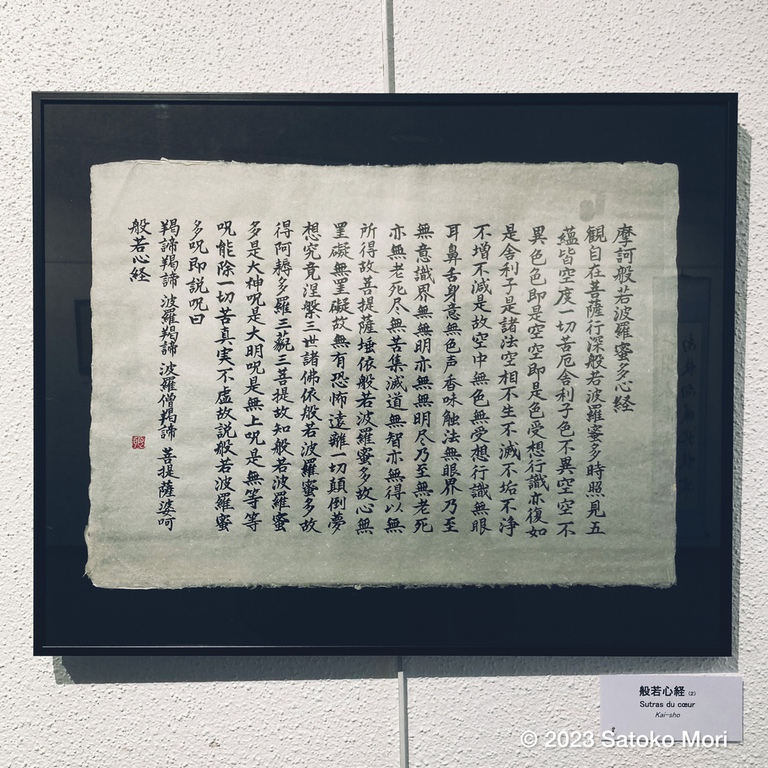 摩訶般若波羅蜜多心経
観自在菩薩行深般若波羅蜜多時照見五
蘊皆空度一切苦厄舎利子色不異空空不
異色色即是空空即是色受想行識亦復如
是舎利子是諸法空相不生不滅不垢不浄
不増不減是故空中無色無受想行識無眼
耳鼻舌身意無色声香味触法無眼界乃至
無意識界無無明亦無無明尽乃至無老死
亦無老死尽無苦集滅道無智亦無得以無
所得故菩提薩埵依般若波羅蜜多故心無
罣礙無罣礙故無有恐怖遠離一切顛倒夢
想究竟涅槃三世諸佛依般若波羅蜜多故
得阿耨多羅三藐三菩提故知般若波羅蜜
多是大神呪是大明呪是無上呪是無等等
呪能除一切苦真実不虚故説般若波羅蜜
多呪即説呪曰
羯諦羯諦 波羅羯諦 波羅僧羯諦 菩提薩婆呵
般若心経
般若心経 (2)
Sutras du cœur
Kai-sho
© 2023 Satoko Mori